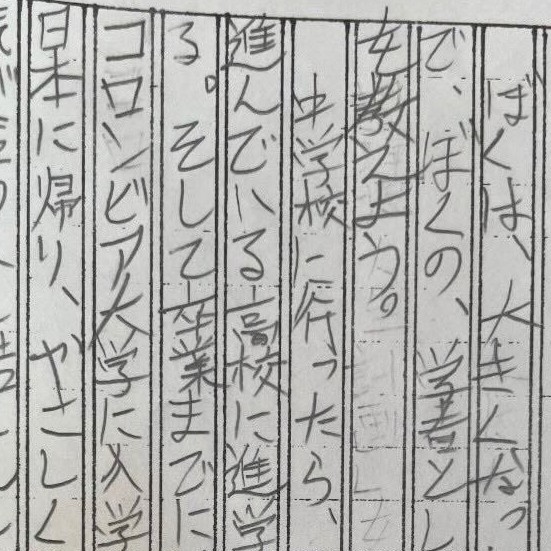 ぼくは、大きくなっ
で、ぼくの、学者とし
を教えよう。
中学校に行ったら、
進んでいる高校に進学
る。そして卒業までに
コロンビア大学に入学
日本に帰り、やさしく